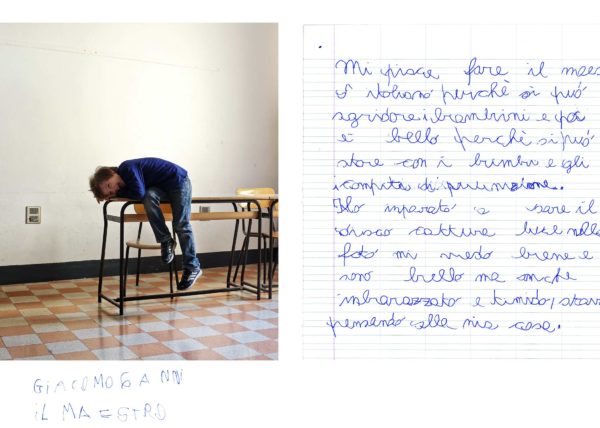 Mi piace fare il maes
d'italiano perchè si può
sgridare i bambini e poi
è bello perchè si può
stare con i bimbi e gli
i compiti di punizione.
Ho imparato a sare il
disco catture luce nella
foto mi vedo bene e
sono bello ma anche
imbarazzato e timido, stavo
pensando alla mia casa.
GIACOMO 6 ANNI
IL MAESTRO